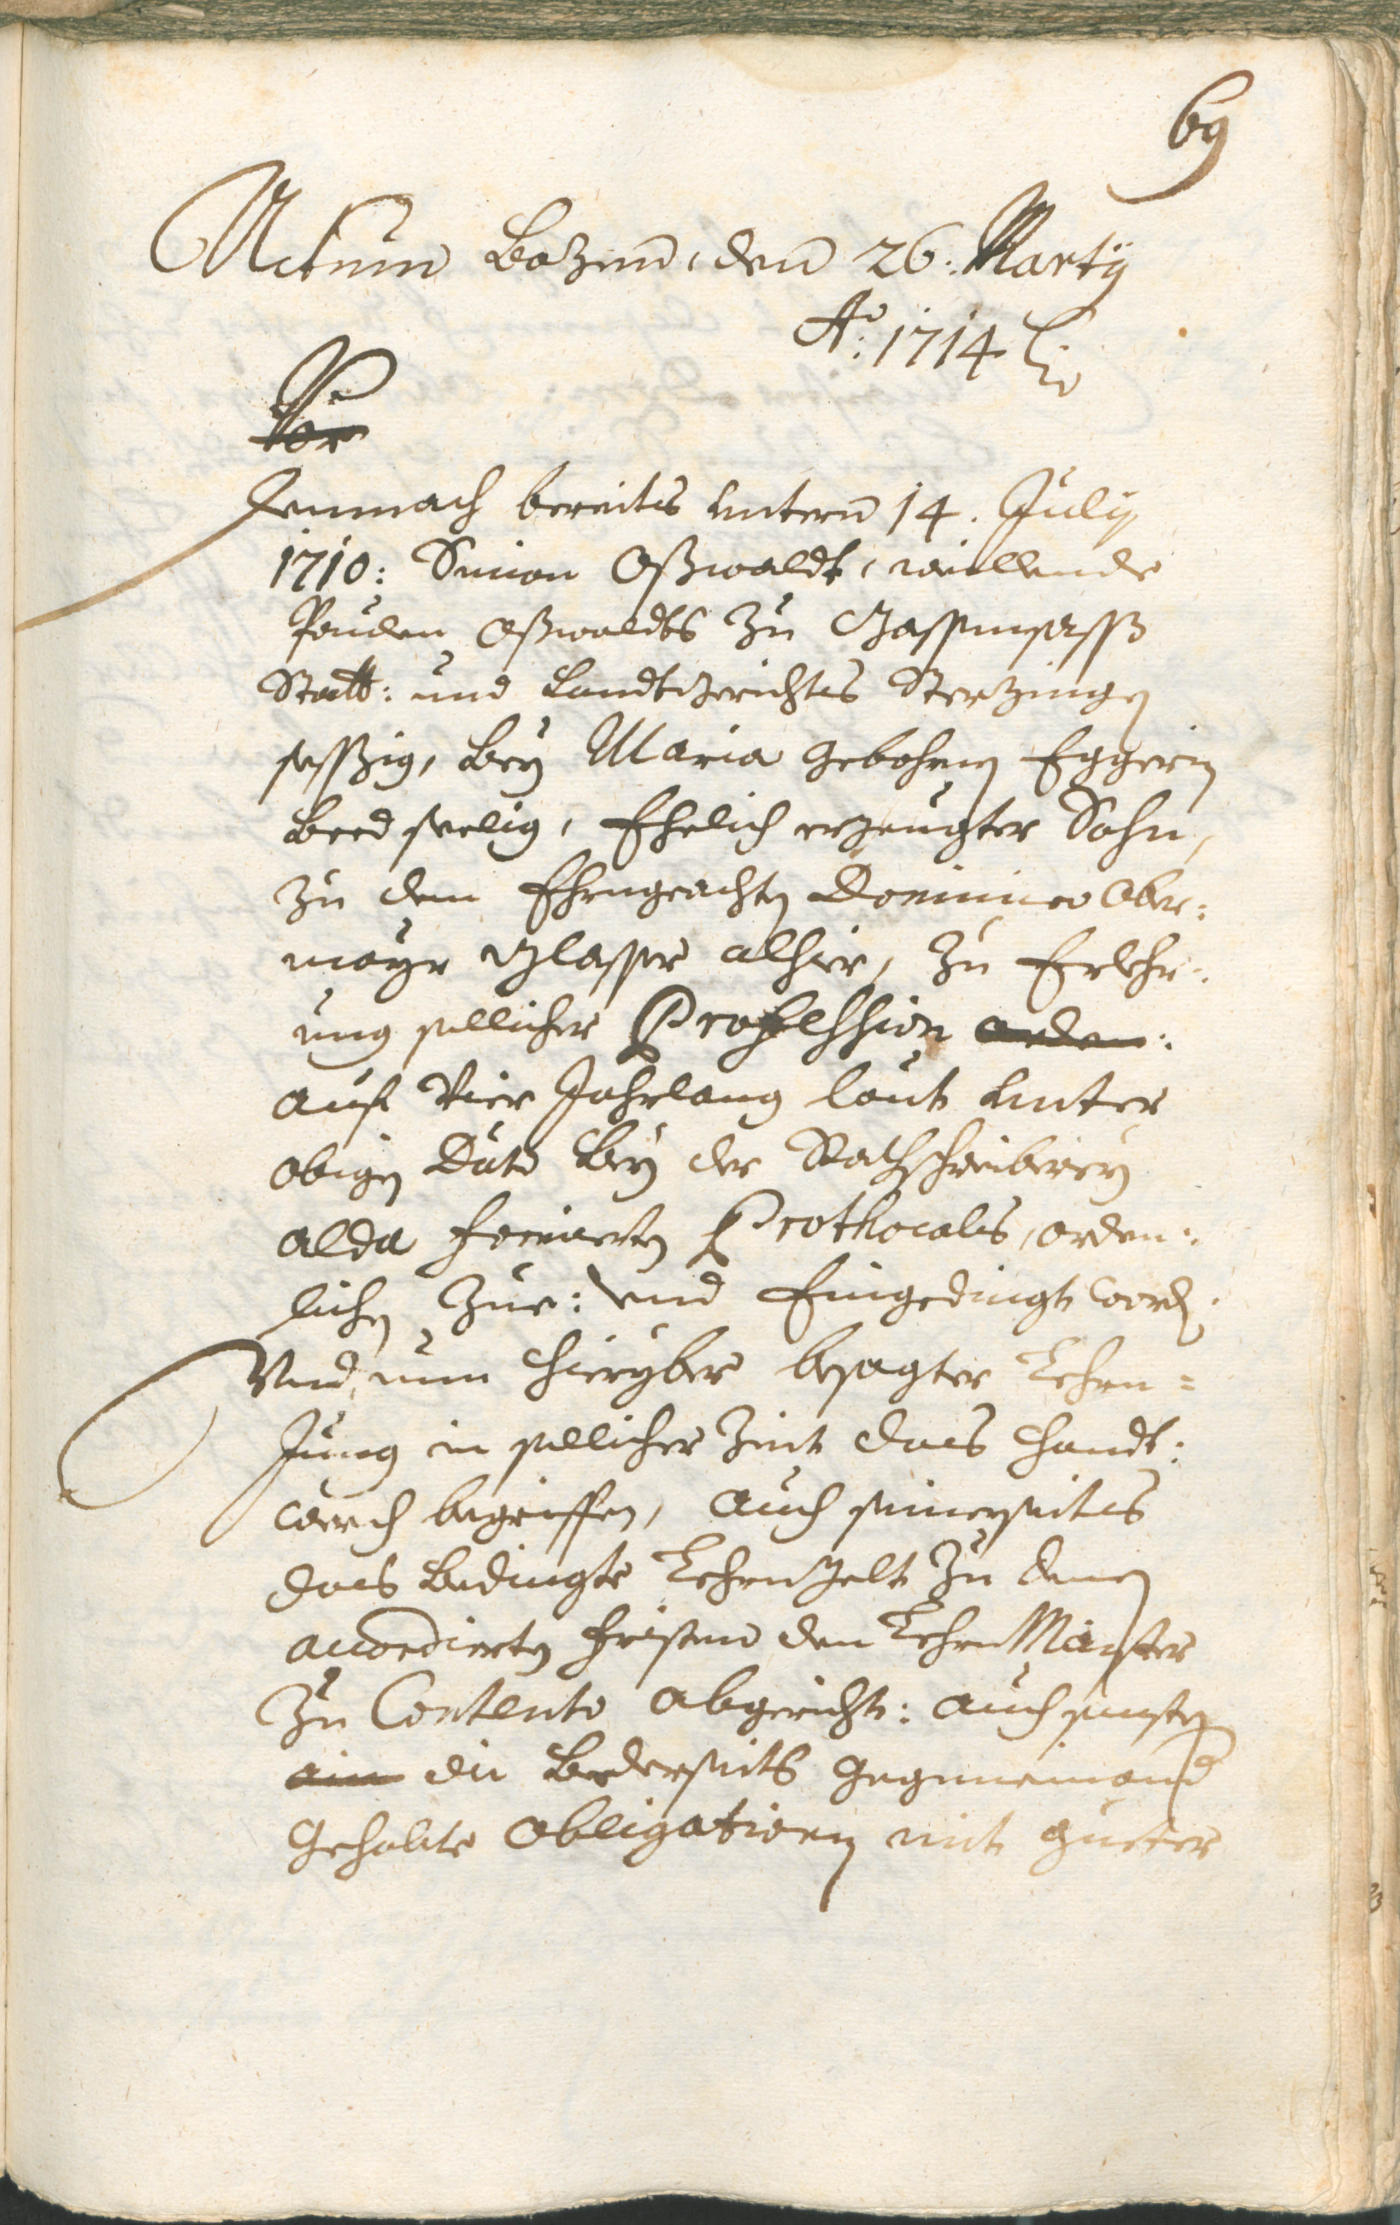 69
Actum Bozen, den 26: Marty
Ao: 1714
Vor
Demnach bereits untern 14. July
1710: Simon Oßwaldt, weillende
Pauln Oßwaldts zu Gossensaß
Statt: und Landtgerichts Sterzingen
seßhig, bey Maria gebohrnen Eggerin
beed seelig, Ehelich erzeugter Sohn,
zu dem Ehrngeachten Dominico Ober:
mayr Glasser alhier, zu Erlehr:
ung sollicher Professhion orden:
auf Vier Jahrlang laut unter
obigen Dato bey der Rathschreiberey
alda formierten Prothocols, orden:
lichen Zue: und Eingedingt word.
Und nun hieryber besagter Lehrn=
Jung in sollicher Zeit das Handt:
werch begriffen, auch seinerseits
das bedingte Lehrngelt zu denen
accordierten fristen den LehrnMaister
zu Contento abgericht: auch sonsten
ain die bederseits gegeneinand
gehabte Obligationen mit gueter